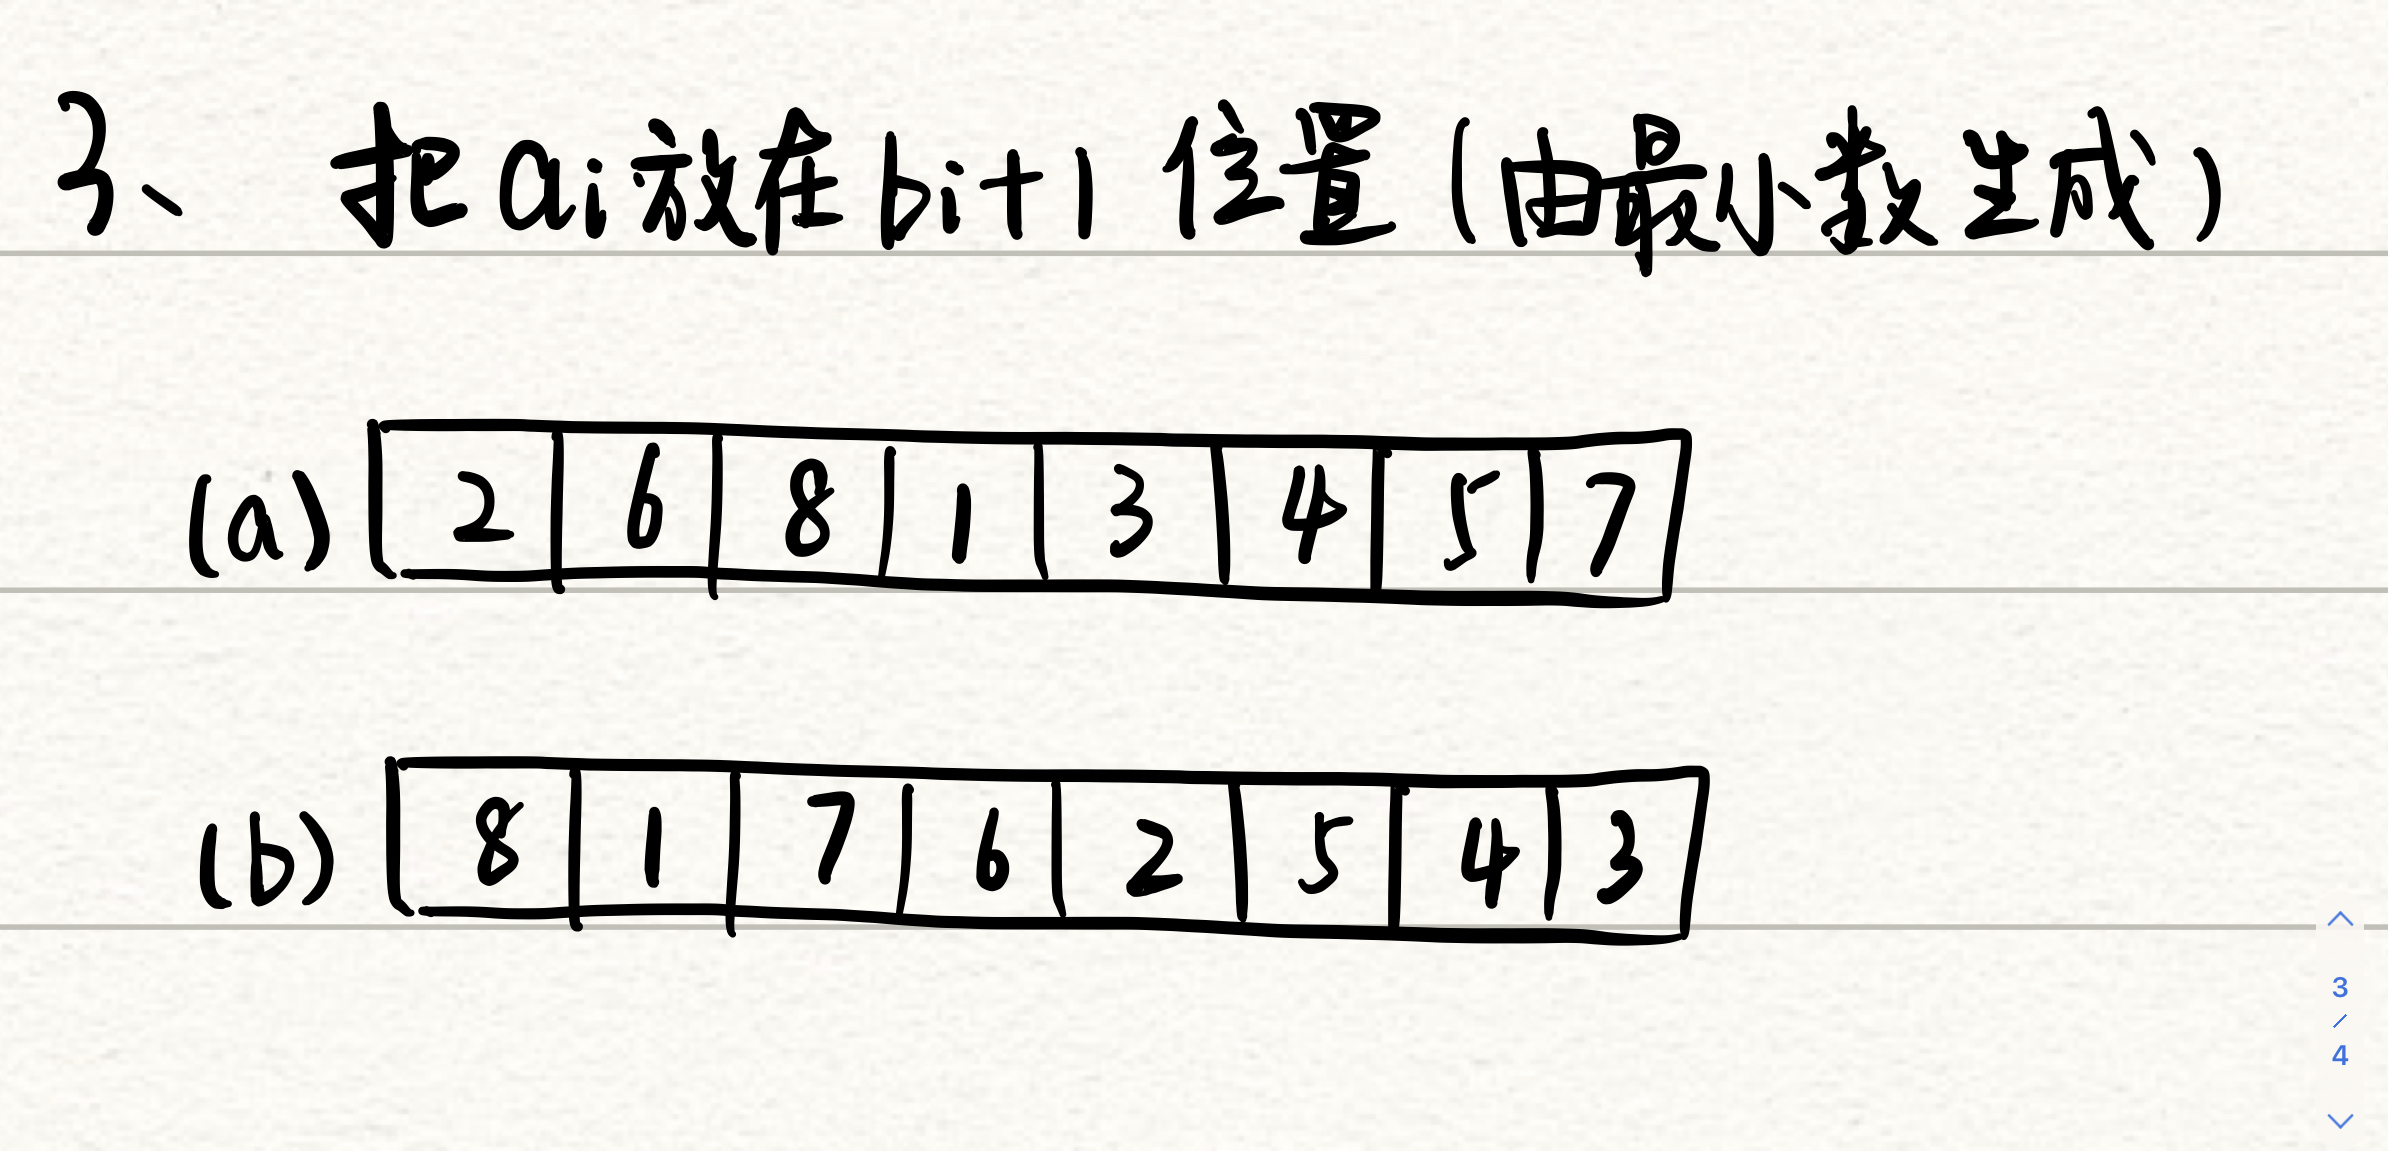 3、 把ai放在bi+1 位置(由最小数生成)
(a) 2 6 8 1 3 4 5 7
(b) 8 1 7 6 2 5 4 3
3
/
4